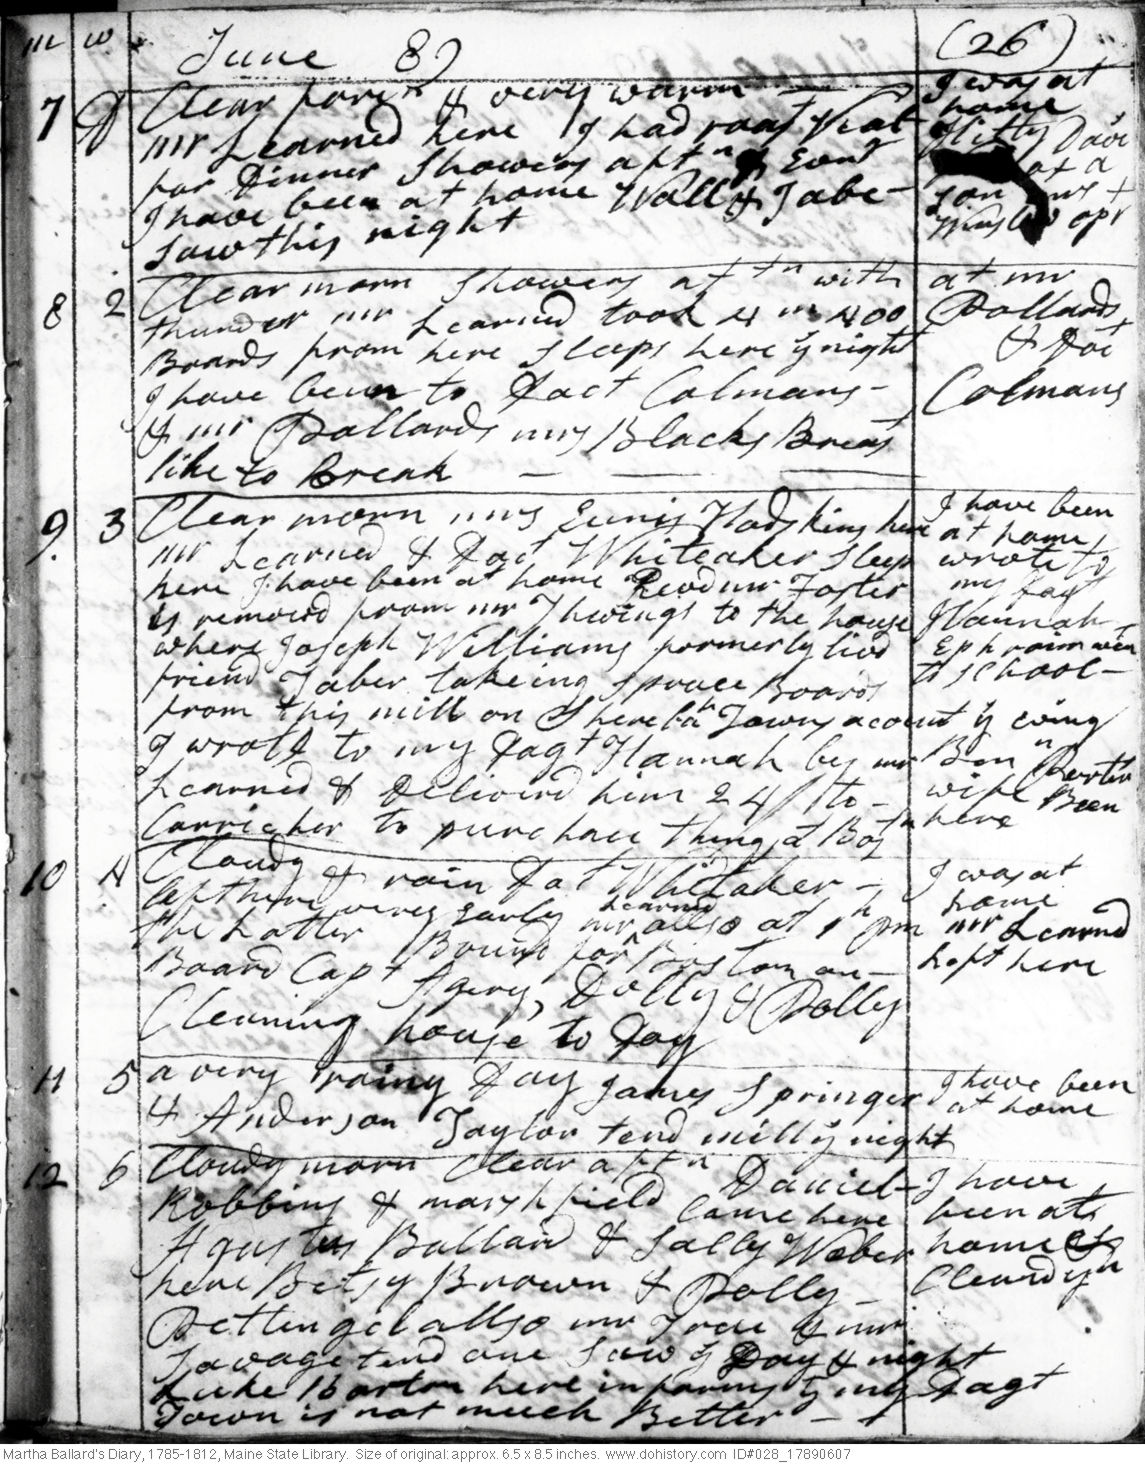 m w June 89 (26)
7 Clear foren & very warm
mr Learned here I had roast Veal
for Dinner Showers aftn & Evng
I have been at home Wall & Tabe-
Saw this night
I was at
home
Hitty
at a
Son
8 2 Clear morn Showers aftn with
thunder mr Learned took 4 m 400
Boards from here Sleeps here y night
I have been to Doct Colmans -
& mr Pollards mrs Blacks Breast
like to break
at mr
Pollards
& Doc
Colmans
9. 3 Clear morn mrs Eunis Hodskins here
mr Learned & Doct Whiteaker Sleep
here I have been at home Revd mr Foster
is removed from mr Thwings to the house
where Joseph Williams formerly livd
friend Taber takeing Spruce Boards
from this mill on Sherebh Towns acount y evng
I wrote to my Dagt Hannah by mr
Learned & Delivered him 24/ to -
Carrie her to purchase things at Bostn
I have been
at home
wrote to
my Dagt
Hannah
Ephraim wen
to School -
Benn
wife Been
here
10 4 Cloudy & rain Dct Whitaker -
left here very Early mr Learned allso at 1 h pm
the Latter Bound for Boston on -
Board Capt Agery, Dolly & Polly
Cleaning house to Day
I was at
home
mr Learned
left here
11 5 a very rainy Day James Springer
& Anderson Taylor tend mill y night
I have been
at home
12 6 Cloudy morn Clear aftn Daniel -
Robbins & marshfield Came here
Agustus Ballard & Sally Weber
here Betsy Brown & Polly -
Pettengel allso mr True & mr
Savage tend one Saw y Day & night
Luke Barton here informs y my Dagt
Town is not much Better -
I have
been at
home
Cleard yn
Martha Ballard's Diary, 1785-1812, Maine State Library. Size of original: approx. 6.5 x 8.5 inches. www.dohistory.com ID#028_17890607